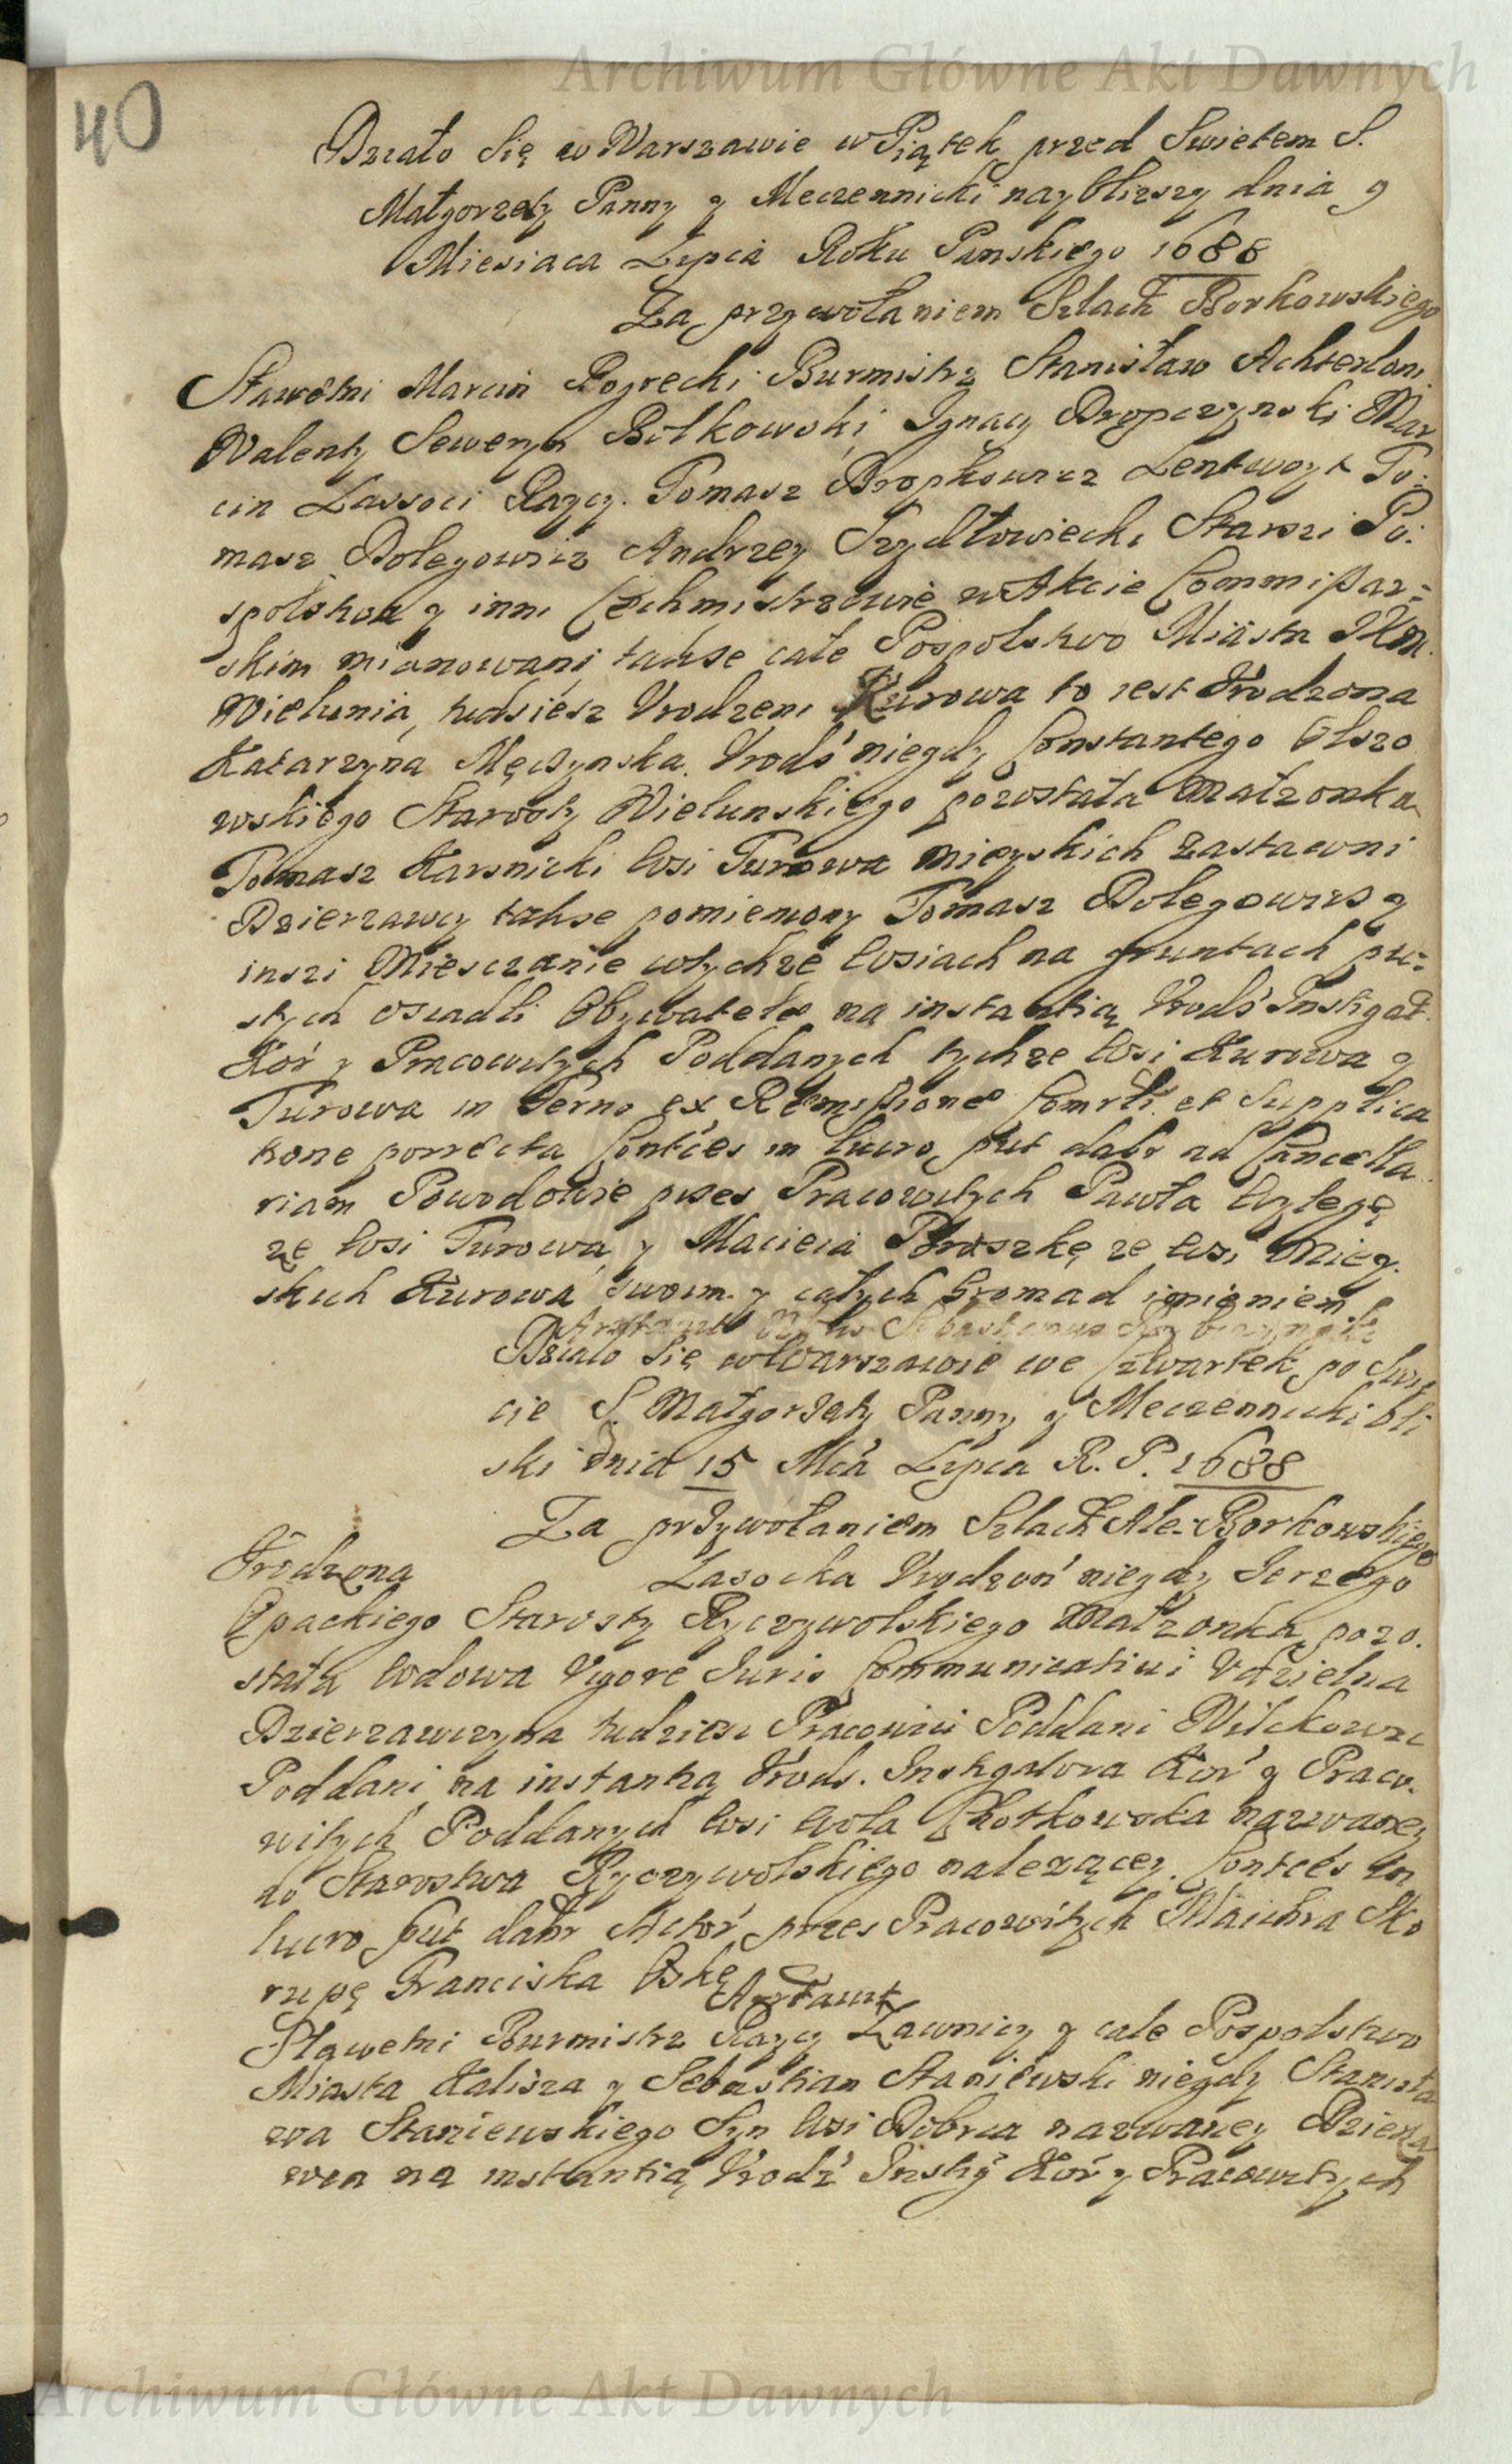 Archiwum Główne Akt Dawnych
40
Działo Się w Warszawie w Piątek przed Swietem S.
Małgorzaty Panny y Meczennicki nayblizszy dnia 9
Miesiaca Lipca Roku Panskiego 1688
Za przywołaniem Szlach Borkowskiego
Sławetni Marcin Burmistrz Stanisław
Walenty Seweryn Bolkowski Ignacy Dropczynski Mar
cin Lassoci Raycy. Tomasz Lentwoyt To:
masz Bolegowicz Andrzey Szydłowiecki Starsi Po:
spolstwa y inni Cechmistrzowie w Akcie Commissar:
skim mianowani, takse całe Pospolstwo Miasta JKM.
Wielunia, tudsiesz Urodzeni Kurowa to iest Urodzona
Katarzyna Męczynska Urodź niegdy Constantego Olszo
wskiego Starosty Wielunskiego pozostała Małzonka
Tomasz Karsnicki Wsi Turowa mieyskich zastawni
Dzierzawcy takse pomieniony Tomasz Bolegowicz y
inszi Miesczanie w tychze Wsiach na gruntach pu:
stych osiadli Obywatele na instantią Urodź Instigat.
Kor y Pracowitych Poddanych tychze Wsi Kurowa y
Turowa in Termo ex Remissione Comrli. et Supplica
tione porrecta Contces in lucro put dabr ad Cancella
riam Powodowie przes Pracowitych Pawła
ze Wsi Turowa y Macieia Broszkę ze Wsi Miey
skich Kurowa swoim y całych Gromad imieniem
Działo Się w Warszawie we Czwartek po Swię
cie S. Małgorzaty Panny y Meczennicki bli
ski dnia 15 Mca Lipca R. P. 1688
Za przywołaniem Szlach Ale: Borkowskiego
Urodzona Lasocka Urodzon niegdy Jerzego
Opackiego Starosty Ryczywolskiego Małzonka pozo.
stała Wdowa Vigore Juris Communicativi Udzielna
Dzierzawczyna tudziesz Pracowici Poddani
Poddani na instantią Urodz. Instigatora Kor y Praco.
witych Poddanych Wsi Wola nazwaney
do Starostwa Ryczywolskiego nalezącey Contces in
lucro put dabr Actor przes Pracowitych Maichra Sko
rupę Franciszka
Sławetni Burmistrz Raycy Ławnicy y całe Pospolstwo
Miasta Kalisza y Sebastian Staniewski niegdy Stanisła
wa Staniewskiego Syn Wsi Dobrca nazwaney Dzierza
wca na instantią Urodź Instig Kor y Pracowitych
Archiwum Główne Akt Dawnych